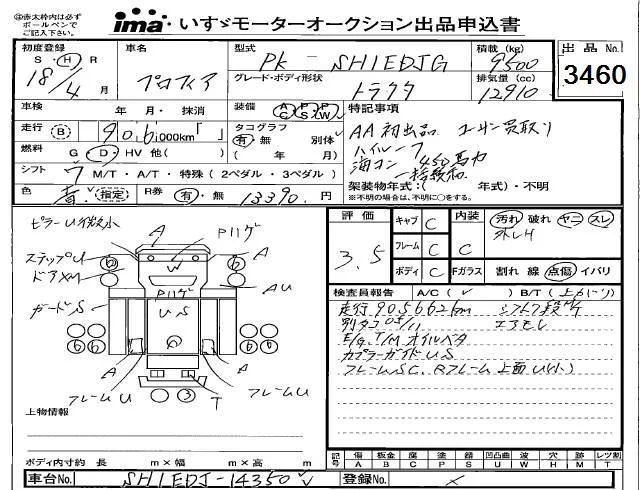 赤太枠内は必ず
ボールペンで
ご記入下さい。
ima いすゞモーターオークション出品申込書
初度登録 車名 型式 積載 (kg) 出品 No.
S・H・R 18/4 月 プロフィア PK - SH1EDJG 9500 3460
グレード・ボディ形状 トラクタ 排気量 (cc) 12910
車検 年 月・抹消 装備 AC PS PW 特記事項
走行 B 906,000km タコグラフ 有・無 別体 AA初出品 ユーザー買取り
燃料 G D HV 他( ) ( 年 月) ハイルーフ
海コン 450馬力
シフト 7 M/T・A/T・特殊 (2ペダル・3ペダル) 一括緩和
架装物年式:( 年式)・不明
色 青 (指定) R券 有・無 13390 円 ※不明の場合は、不明に○をする。
評価 3.5
キャブ C 内装 C 汚れ 破れ ヤニ スレ
フレーム C
ボディ C Fガラス 割れ 線 点傷 イバリ
ピラーU微小
ステップU
ドアXM
ガードS
A A P U A AU
W
Pハゲ
Pハゲ
U S
A A
フレームU T フレームU
3
検査員報告 A/C( ) B/T( )
走行905662km
別タコ
エアモレ
E/G, T/M オイルベタ
カプラーガイドUS
フレームSC, Rフレーム上面U(小)
上物情報
ボディ内寸約 長 m×幅 m×高 m
記号 傷 A 板金 B 腐 C 塗 P 錆 S 凹凸曲 U 波 W 穴 H 跡 M 木 T レツ割
車台No. SH1EDJ-14350 登録No. ×